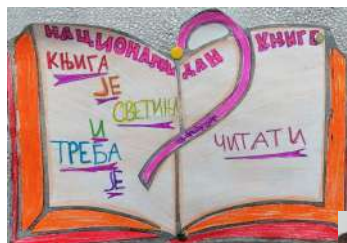 НАЦИОНАЛНИ ДАН КЊИГЕ
КЊИГА
ЈЕ
СВЕТИЊА
И
ТРЕБА
ЈЕ
ЧИТАТИ